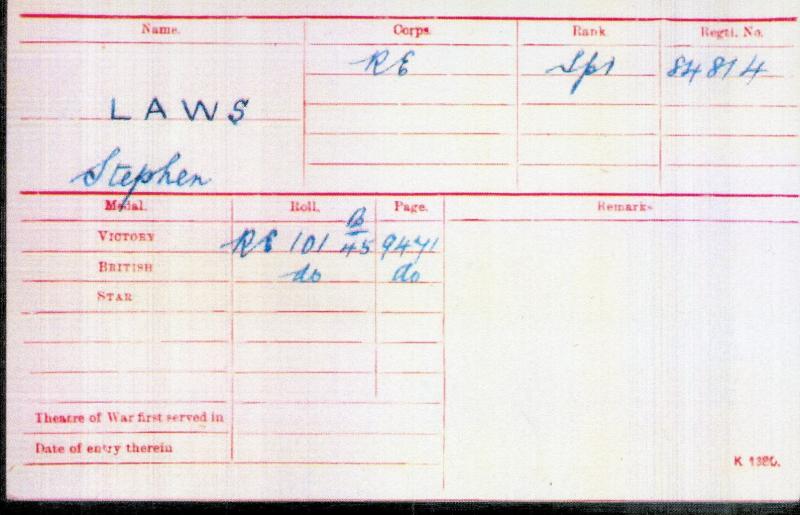 Name. Corps. Rank Regtl. No.
RE Spr 84814
LAWS
Stephen
Medal. Roll. Page. Remarks
VICTORY RE 101 B/45 9471
BRITISH do do
STAR
Theatre of War first served in
Date of entry therein
K 1380.